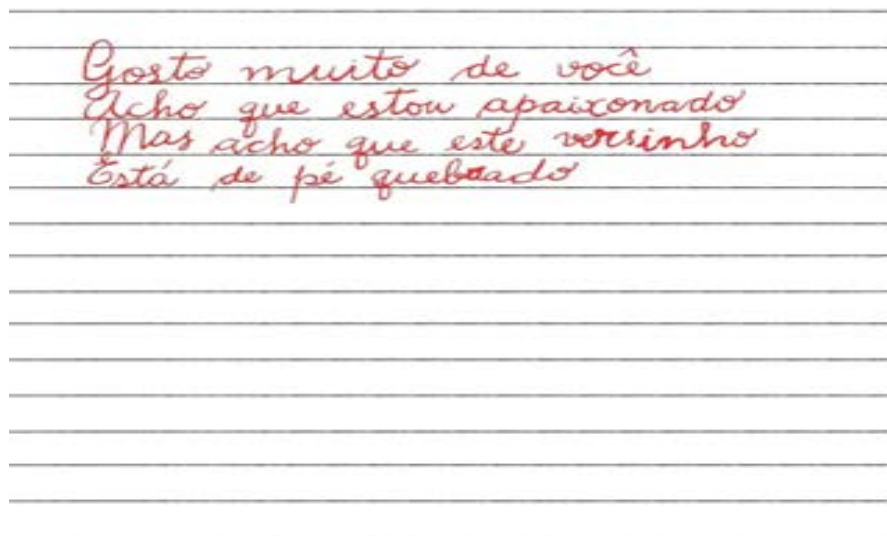 Gosto muito de você
Acho que estou apaixonado
Mas acho que este versinho
Está de pé quebrado